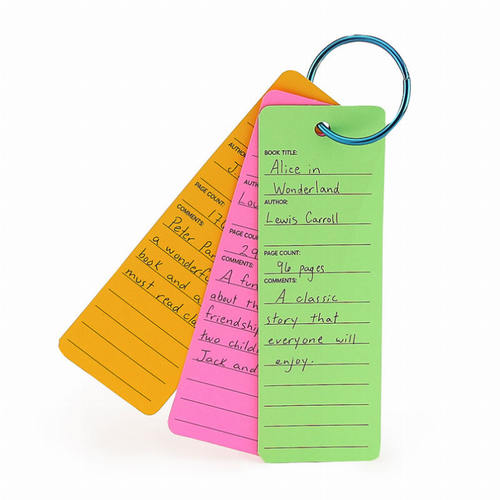 BOOK TITLE:
Alice in
Wonderland
AUTHOR:
Lewis Carroll
PAGE COUNT:
96 pages
COMMENTS:
A classic
story that
everyone will
enjoy.
PAGE COUNT:
29
COMMENTS:
A fun
about th
friendship
two child
Jack and
AUTHO
J
PAGE COUNT:
17
COMMENTS:
Peter Pan
a wonderf
book and a
must read cla